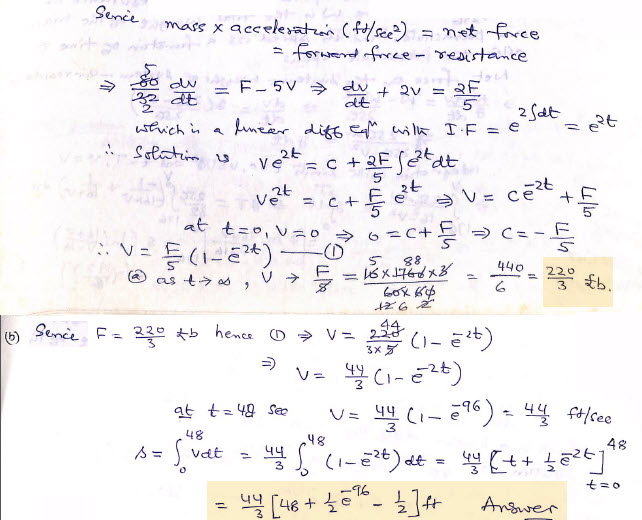 Sence mass x acceleration (ft/sec²) = net force
= forward force - resistance
⇒ 5 80/32 2 dv/dt = F - 5V ⇒ dv/dt + 2V = 2F/5
which is a linear diff Eqⁿ with I.F = e^{2∫dt} = e^{2t}
∴ Solution is Ve^{2t} = C + 2F/5 ∫e^{2t}dt
Ve^{2t} = C + F/5 e^{2t} ⇒ V = Ce^{-2t} + F/5
at t=0, V=0 ⇒ 0 = C + F/5 ⇒ C = -F/5
∴ V = F/5 (1 - e^{-2t}) —— ①
ⓐ as t→∞, V → F/5 = 5 88 10 x 1760 x 3 / 60 x 60 12 6 2 = 440/6 = 220/3 £b.
(b) Sence F = 220/3 £b hence ① ⇒ V = 44 220/3x5 (1 - e^{-2t})
⇒ V = 44/3 (1 - e^{-2t})
at t = 48 sec V = 44/3 (1 - e^{-96}) = 44/3 ft/sec
s = ∫₀^{48} Vdt = 44/3 ∫₀^{48} (1 - e^{-2t}) dt = 44/3 [t + 1/2 e^{-2t}]^{48}_{t=0}
= 44/3 [48 + 1/2 e^{-96} - 1/2] ft Answer